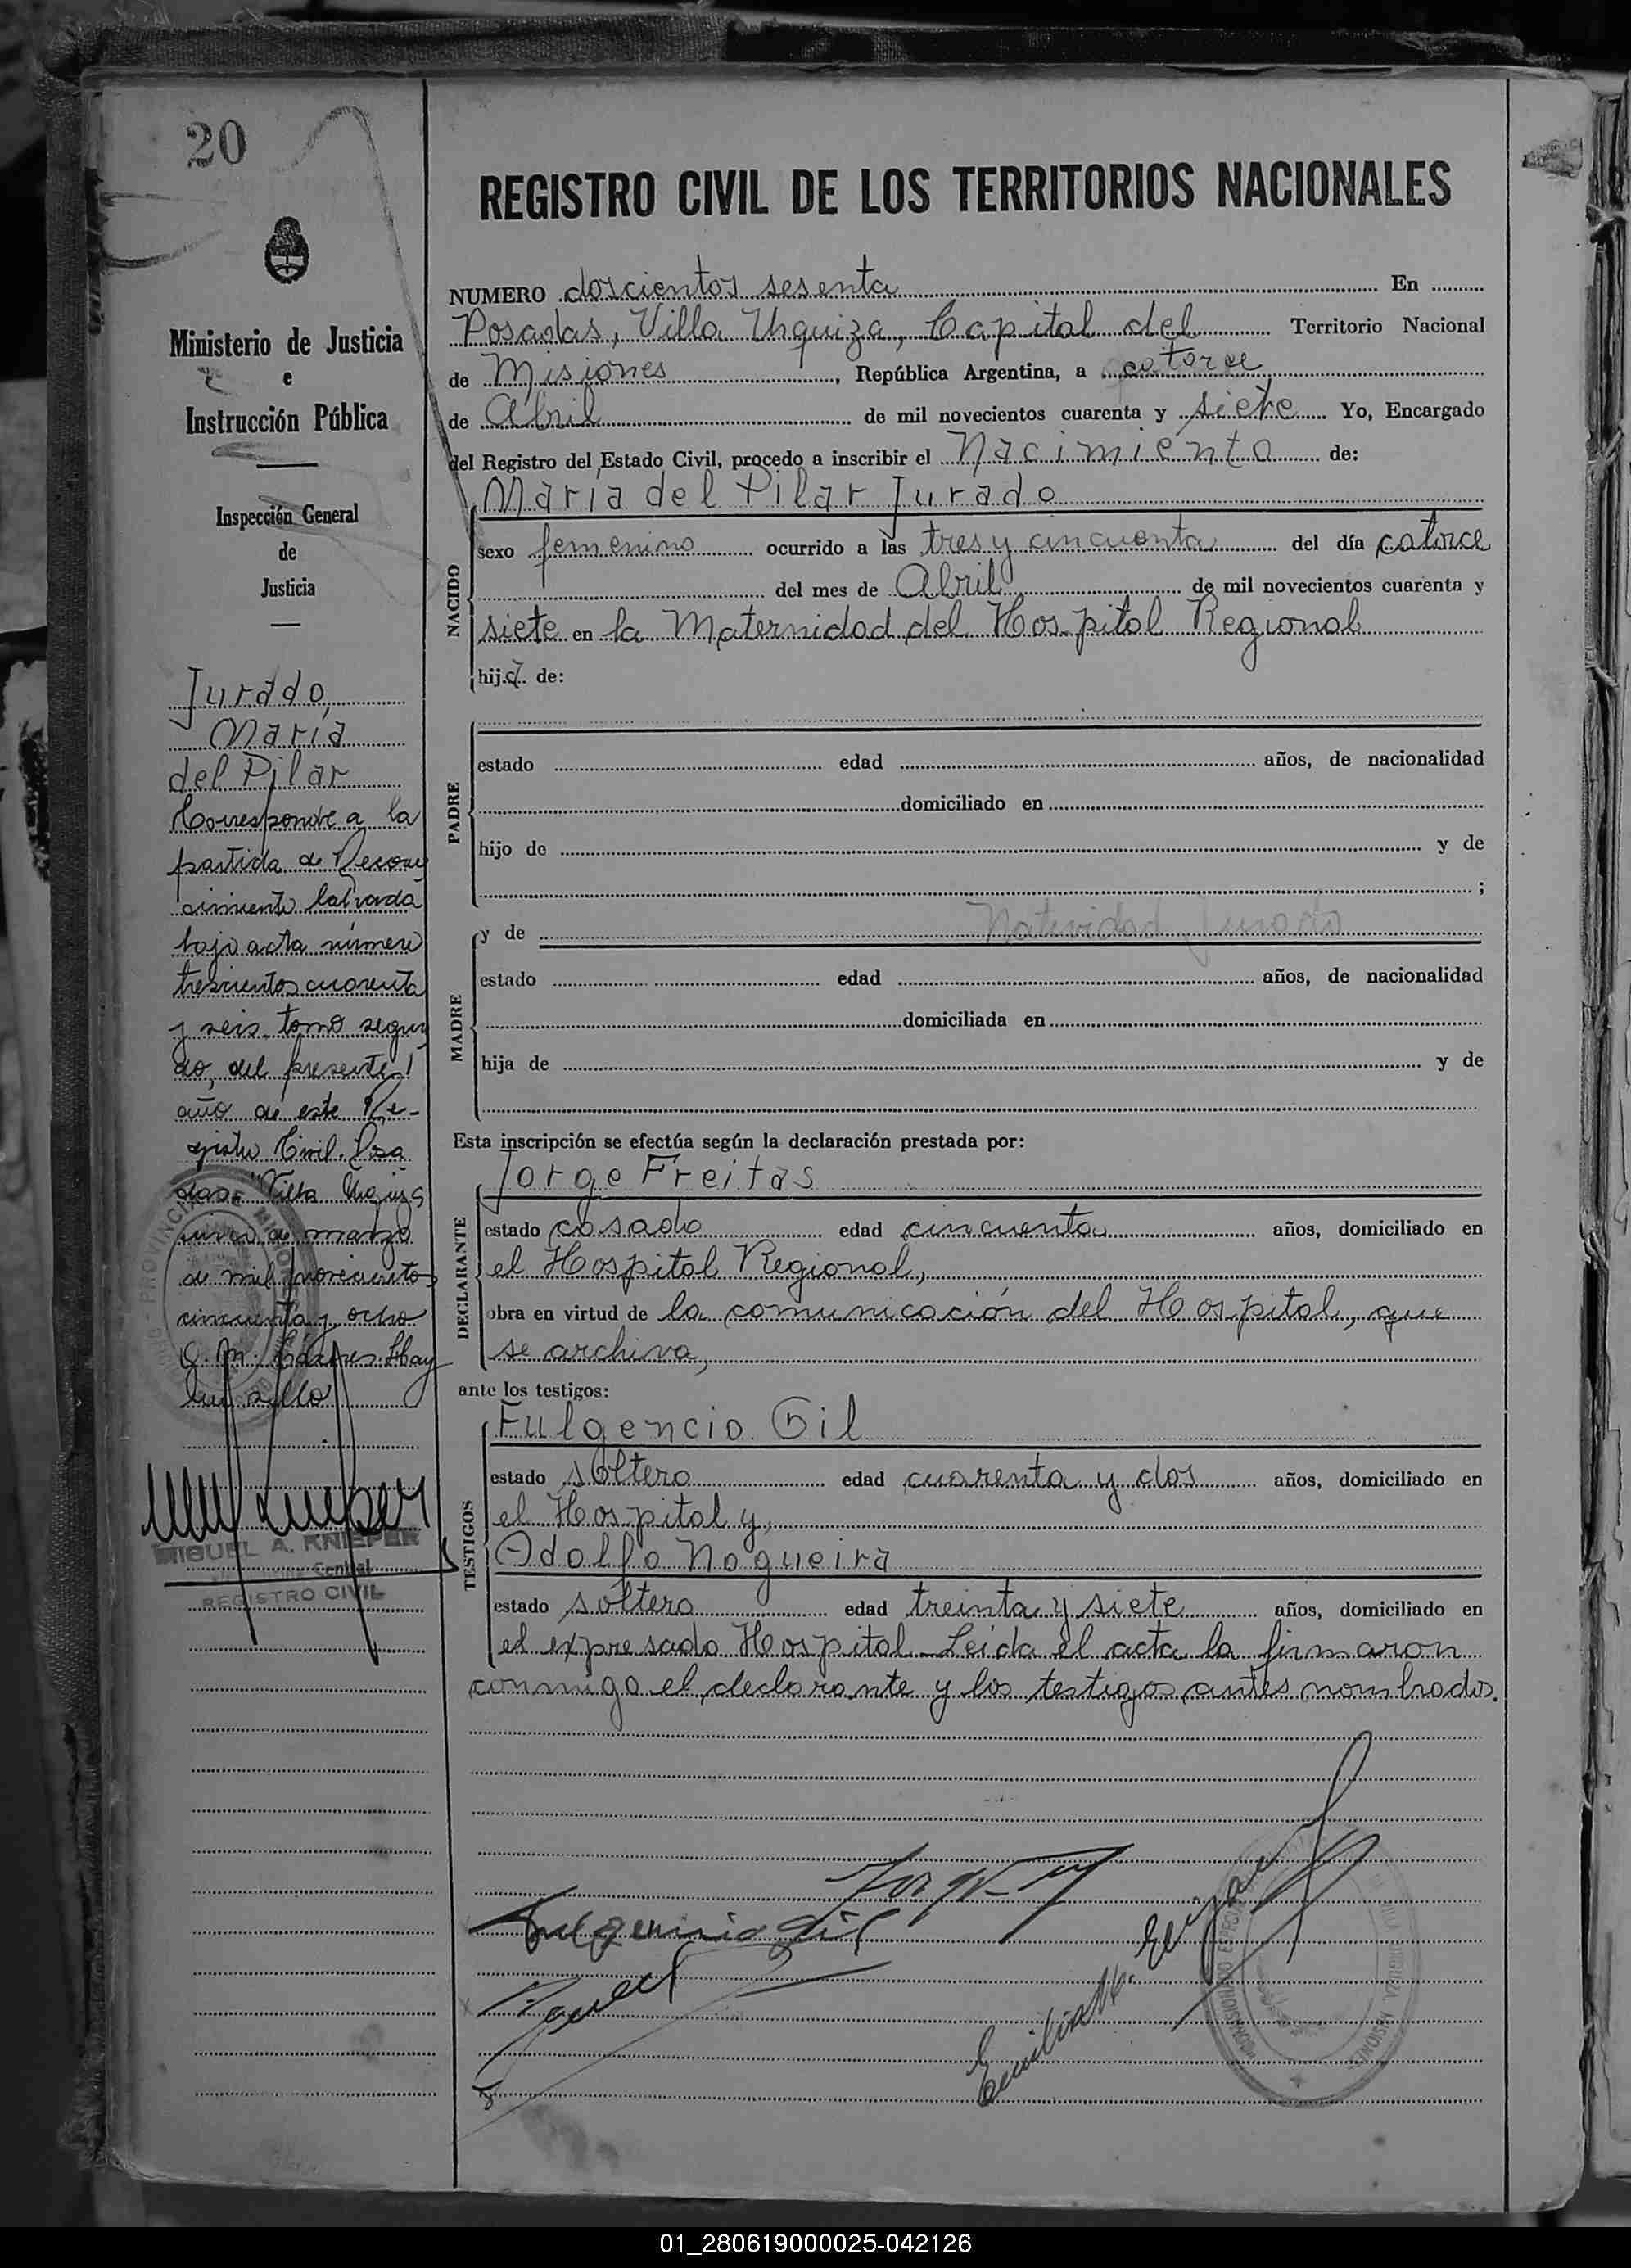 20
Ministerio de Justicia
e
Instrucción Pública
Inspección General
de
Justicia
Jurado,
María
del Pilar
Corresponde a la
partida de Recono
cimiento labrada
bajo acta número
trescientos cuarenta
y seis, tomo segun
do, del presente
año de este Re-
gistro Civil. Posa
das, "Villa Urquiza
de marzo
de mil novecientos
cincuenta y ocho
Hay
un sello
MIGUEL A. KNIEPER
Central
REGISTRO CIVIL
REGISTRO CIVIL DE LOS TERRITORIOS NACIONALES
NUMERO doscientos sesenta En
Posadas, Villa Urquiza, Capital del Territorio Nacional
de Misiones, República Argentina, a catorce
de Abril de mil novecientos cuarenta y siete Yo, Encargado
del Registro del Estado Civil, procedo a inscribir el Nacimiento de:
María del Pilar Jurado
NACIDO
sexo femenino ocurrido a las tres y cincuenta del día catorce
del mes de Abril de mil novecientos cuarenta y
siete en la Maternidad del Hospital Regional
hija de:
PADRE
estado edad años, de nacionalidad
domiciliado en
hijo de y de
;
y de Natividad Jurado
MADRE
estado edad años, de nacionalidad
domiciliada en
hija de y de
Esta inscripción se efectúa según la declaración prestada por:
Jorge Freitas
DECLARANTE
estado casado edad cincuenta años, domiciliado en
el Hospital Regional,
obra en virtud de la comunicación del Hospital, que
se archiva,
ante los testigos:
Fulgencio Gil
TESTIGOS
estado soltero edad cuarenta y dos años, domiciliado en
el Hospital y,
Adolfo Nogueira
estado soltero edad treinta y siete años, domiciliado en
el expresado Hospital. Leída el acta la firmaron
conmigo el declarante y los testigos antes nombrados.
Fulgencio Gil
01_280619000025-042126